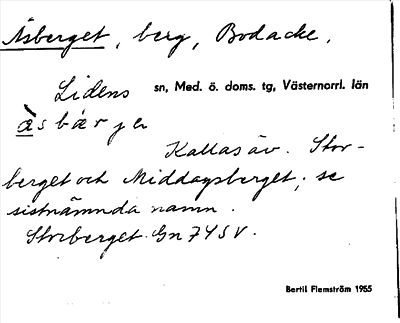 Åsberget, berg, Bodacke.
Lidens sn, Med. ö. doms. tg, Västernorrl. län
àsbærjer
Kallas äv. Stor-
berget och Middagsberget; se
sistnämnda namn.
Storberget Gn 74 S V.
Bertil Flemström 1955